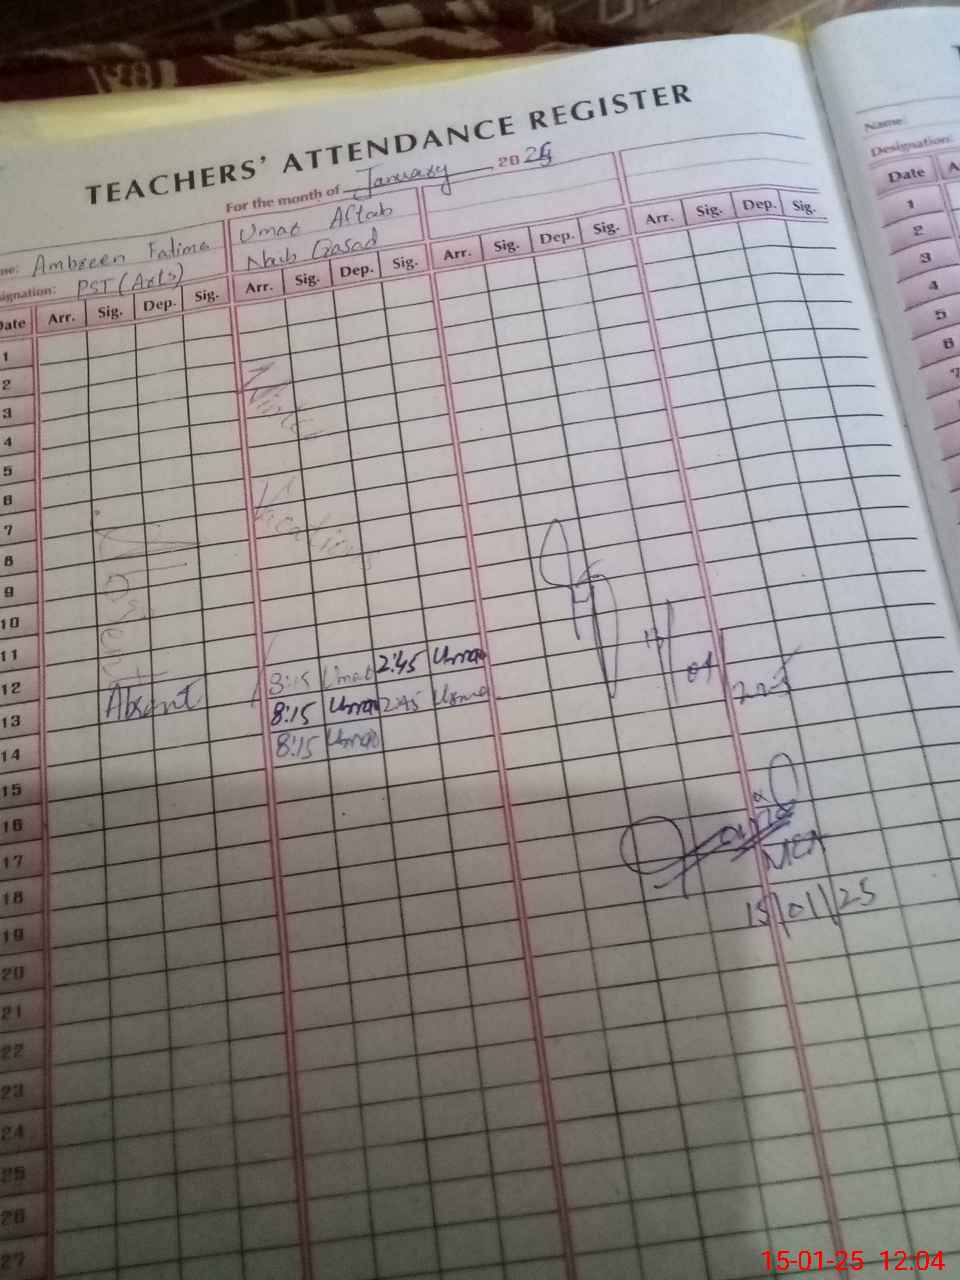 TEACHERS' ATTENDANCE REGISTER
For the month of January 2025
Name:
Designation:
Date
ne: Ambreen Fatima
Umar Aftab
signation: PST (Arts)
Naib Qasad
Date Arr. Sig. Dep. Sig. Arr. Sig. Dep. Sig. Arr. Sig. Dep. Sig. Arr. Sig. Dep. Sig.
1
2
3
4
5
6
7
8
9
10
11
12
13
14
15
16
17
18
19
20
21
22
23
24
25
26
27
Winter
Vacations
Absent
8:15 Umar 2:45 Umar
8:15 Umar 2:45 Umar
8:15 Umar
MEA
15/01/25
1
2
3
4
5
6
7
15-01-25 12:04